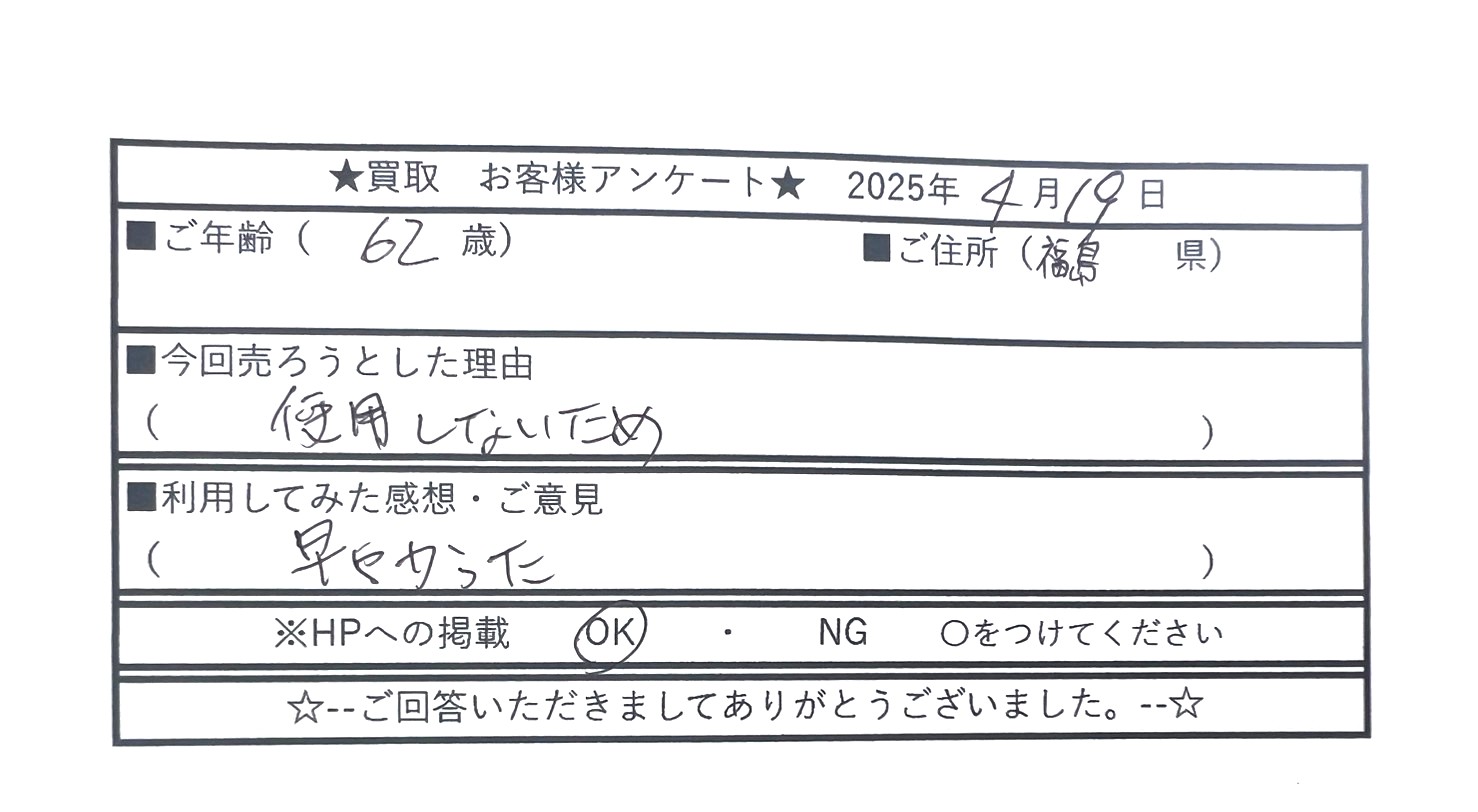 ★買取　お客様アンケート★　2025年 4月19日
■ご年齢（ 62 歳）　■ご住所（福島 県）
■今回売ろうとした理由
（ 使用しないため ）
■利用してみた感想・ご意見
（ 早やかった ）
※HPへの掲載　OK　・　NG　〇をつけてください
☆--ご回答いただきましてありがとうございました。--☆